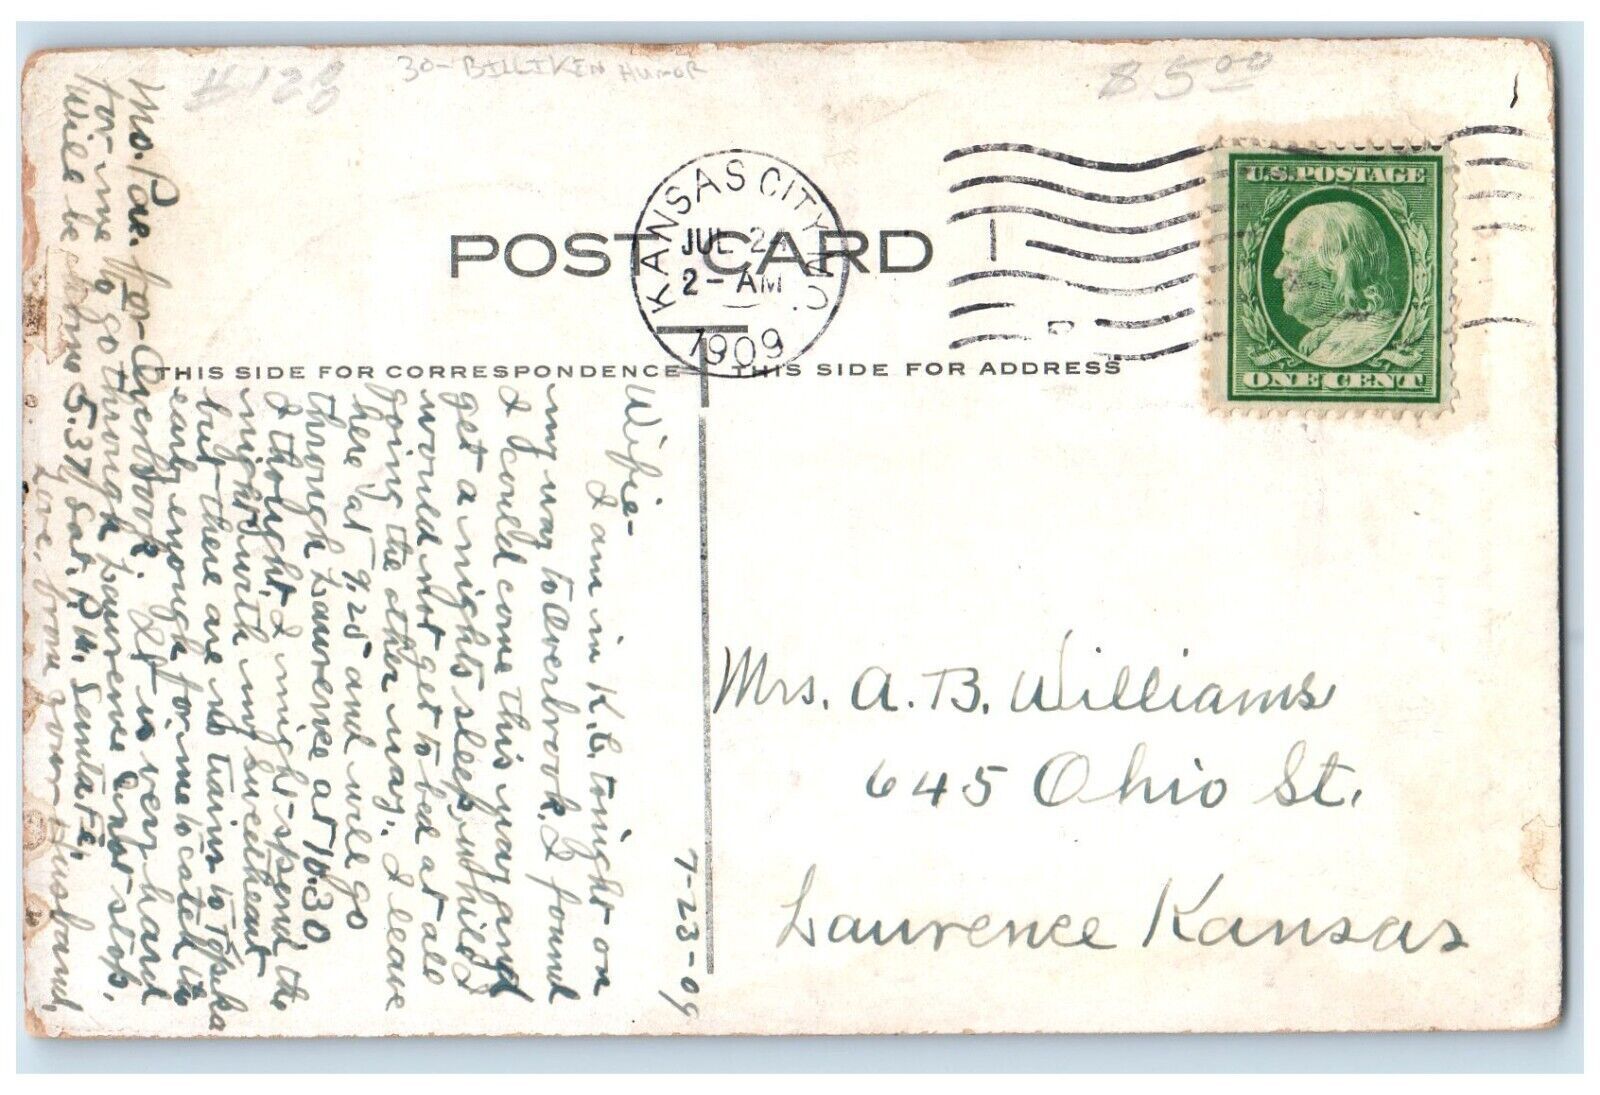 H120
30- BILLIKEN HUMOR
$5.00
KANSAS CITY, MO.
JUL 24
2-AM
1909
U.S. POSTAGE
ONE CENT
POST CARD
THIS SIDE FOR CORRESPONDENCE
THIS SIDE FOR ADDRESS
7-23-09
Wifie-
I am in K.C. tonight on
my way to Overbrook. I found
I could come this way and
get a nights sleep, while I
would not get to bed at all
going the other way. I leave
here at 9.25 and will go
through Lawrence at 10:30
I thought I might spend the
night with my sweetheart
but there are no trains to Topeka
early enough for me to catch the
Mo. Pac. for Overbrook. It is very hard
for me to go through Lawrence & not stop.
Will be home 5.37 Sat. P.M. Santa Fe.
Love, from your Husband.
Mrs. A. B. Williams
645 Ohio St.
Lawrence Kansas